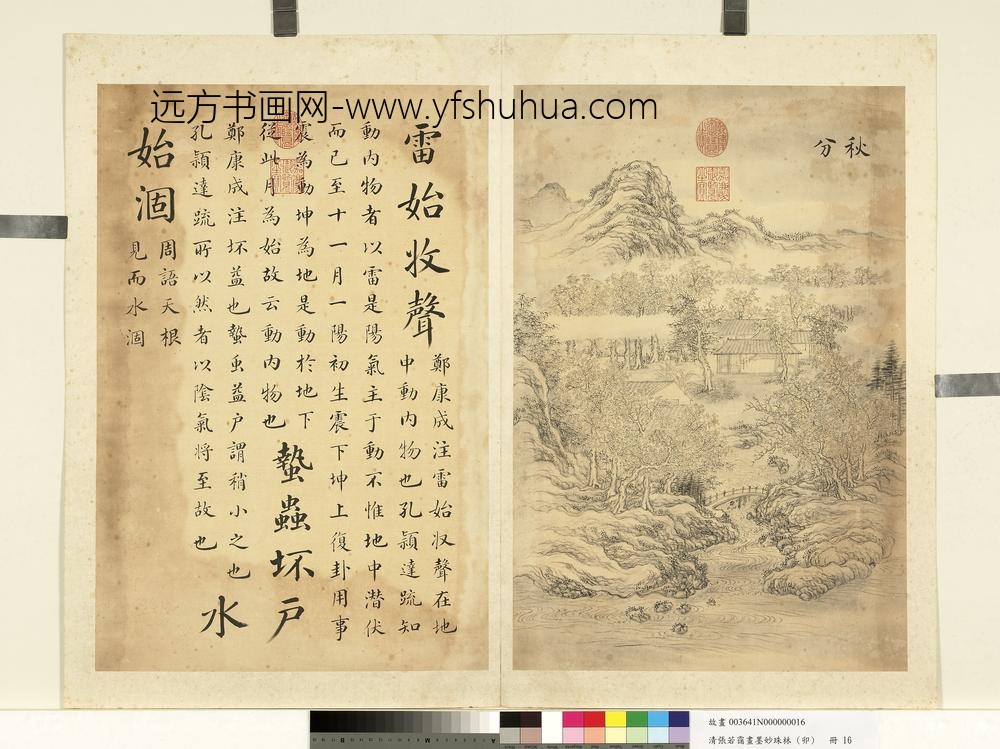 远方书画网-www.yfshuhua.com
秋分
雷始收聲
鄭康成注雷始収聲在地
中動内物也孔穎達疏知
動内物者以雷是陽氣主于動不惟地中潜伏
而已至十一月一陽初生震下坤上復卦用事
震為動坤為地是動於地下
從此月為始故云動内物也
蟄蟲坏戶
鄭康成注坏益也蟄虫益戶謂稍小之也
孔穎達疏所以然者以陰氣将至故也
水
始涸
周語天根
見而水涸
故畫 003641N000000016
清張若靄畫墨妙珠林（卯） 冊 16